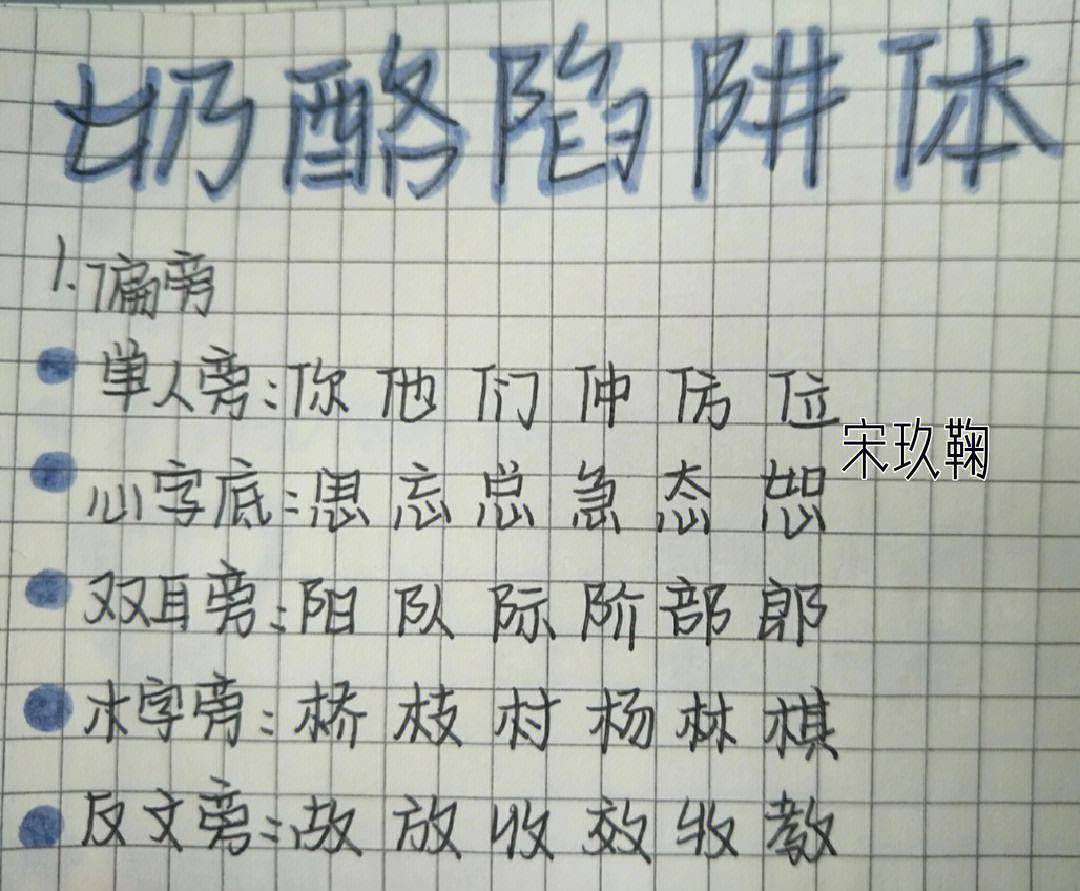 奶酪陷阱体
1.偏旁
单人旁:你 他 们 仲 仿 位
宋玖鞠
心字底:思 忘 总 急 态 恕
双耳旁:阳 队 际 阶 部 郎
木字旁:桥 枝 村 杨 林 棋
反文旁:故 放 收 效 牧 教